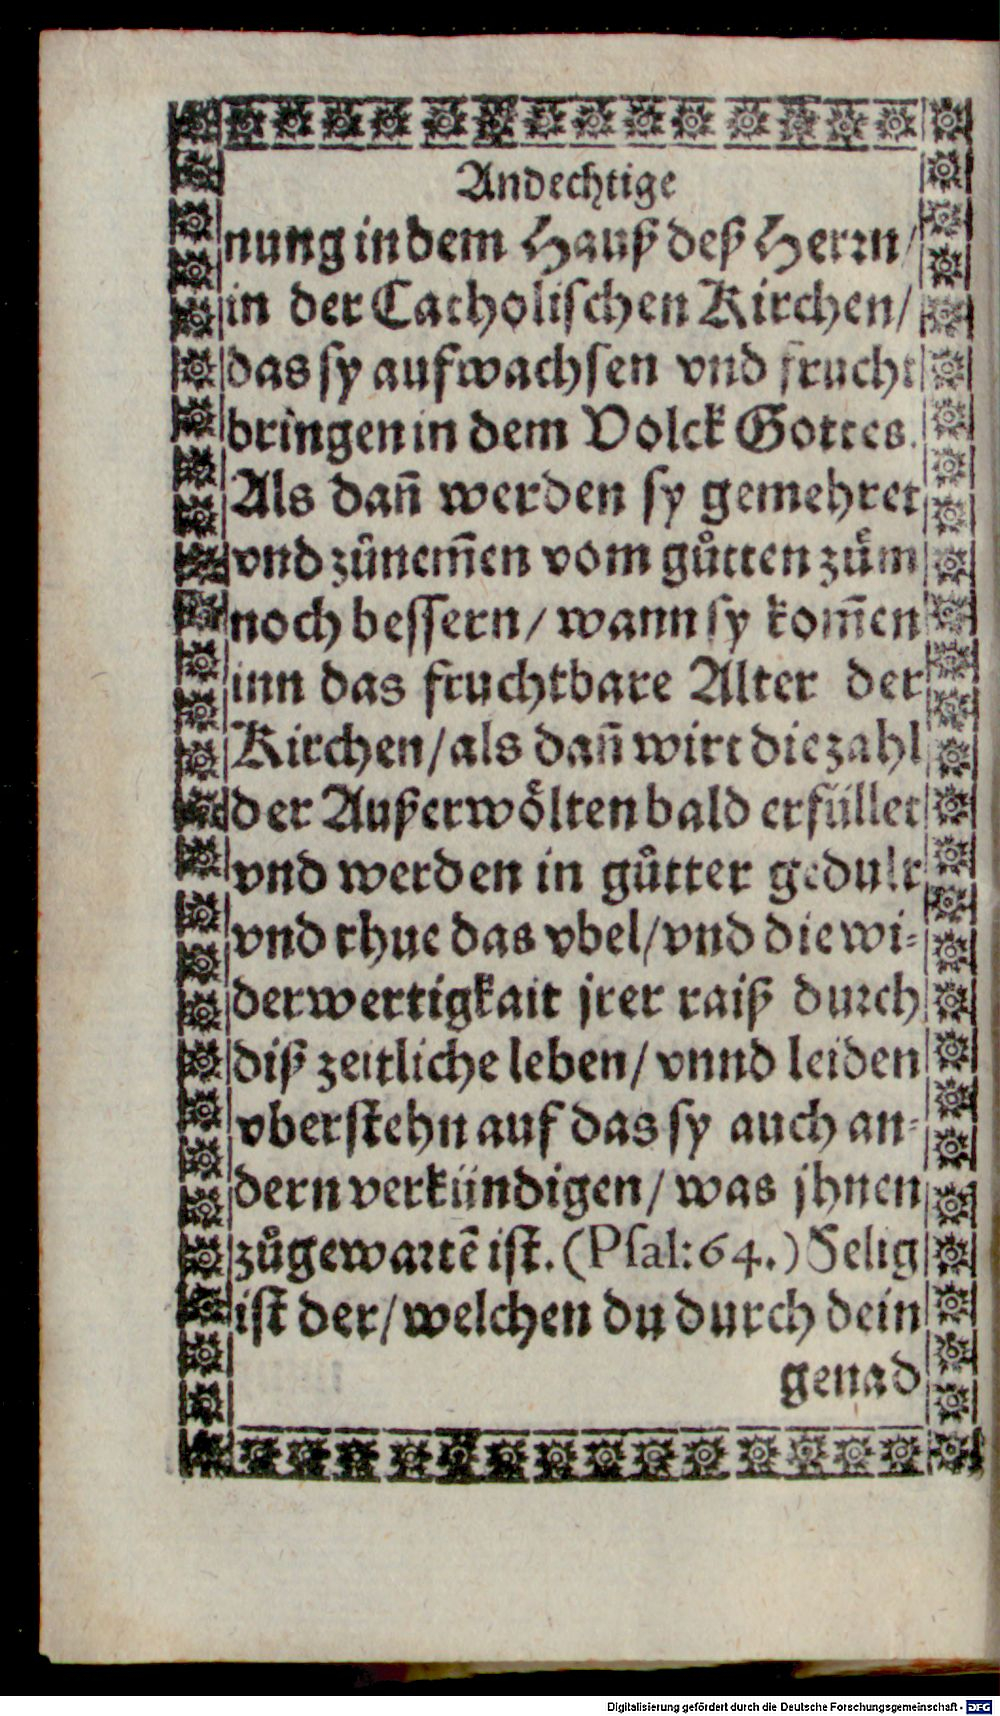 Andechtige
nung in dem Hauß deß Herrn/
in der Catholischen Kirchen/
das sy aufwachsen vnd frucht
bringen in dem Volck Gottes.
Als dañ werden sy gemehret
vnd zůnem̃en vom gůtten zům
noch bessern/ wann sy kom̃en
inn das fruchtbare Alter der
Kirchen/ als dañ wirt die zahl
der Außerwölten bald erfüllet
vnd werden in gůtter gedult
vnd rhue das vbel/ vnd die wi⸗
derwertigkait jrer raiß durch
diß zeitliche leben/ vnnd leiden
vberstehn auf das sy auch an⸗
dern verkündigen/ was jhnen
zůgewartẽ ist. (Psal: 64.) Selig
ist der/ welchen du durch dein
genad
Digitalisierung gefördert durch die Deutsche Forschungsgemeinschaft - DFG